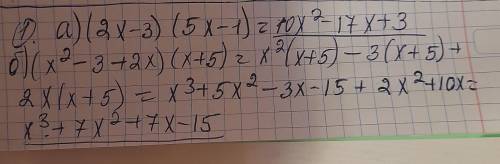 ①. а) (2x-3) (5x-1) = 10x²-17x+3
б) (x²-3+2x) (x+5) = x²(x+5) - 3(x+5) +
2x(x+5) = x³+5x²-3x-15 + 2x²+10x=
x³+7x²+7x-15